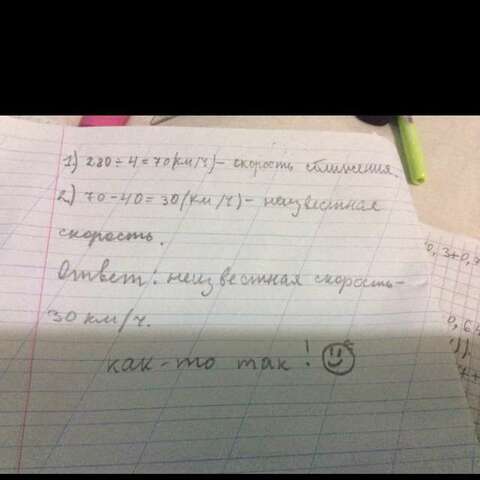 1.) 280 ÷ 4 = 70(км/ч) - скорость сближения.
2.) 70 - 40 = 30(км/ч) - неизвестная
скорость.
Ответ: неизвестная скорость -
30 км/ч.
как-то так!
0,3+0,7
0,6